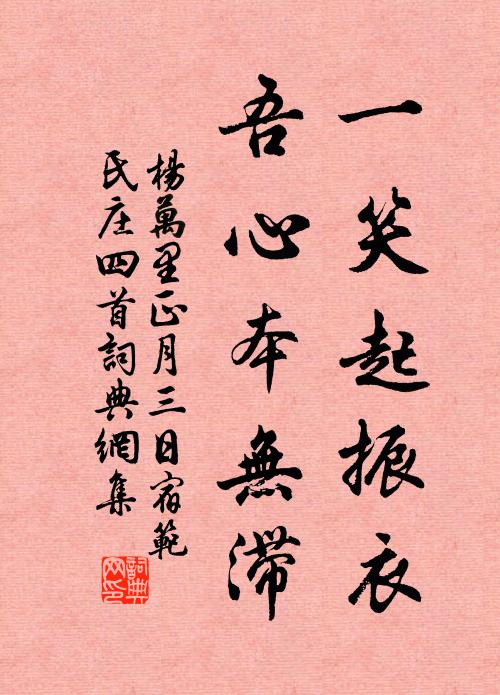 一笑起振衣
吾心本無滯
楊萬里正月三日宿範
氏庄四首詞典網集
詞典
网印